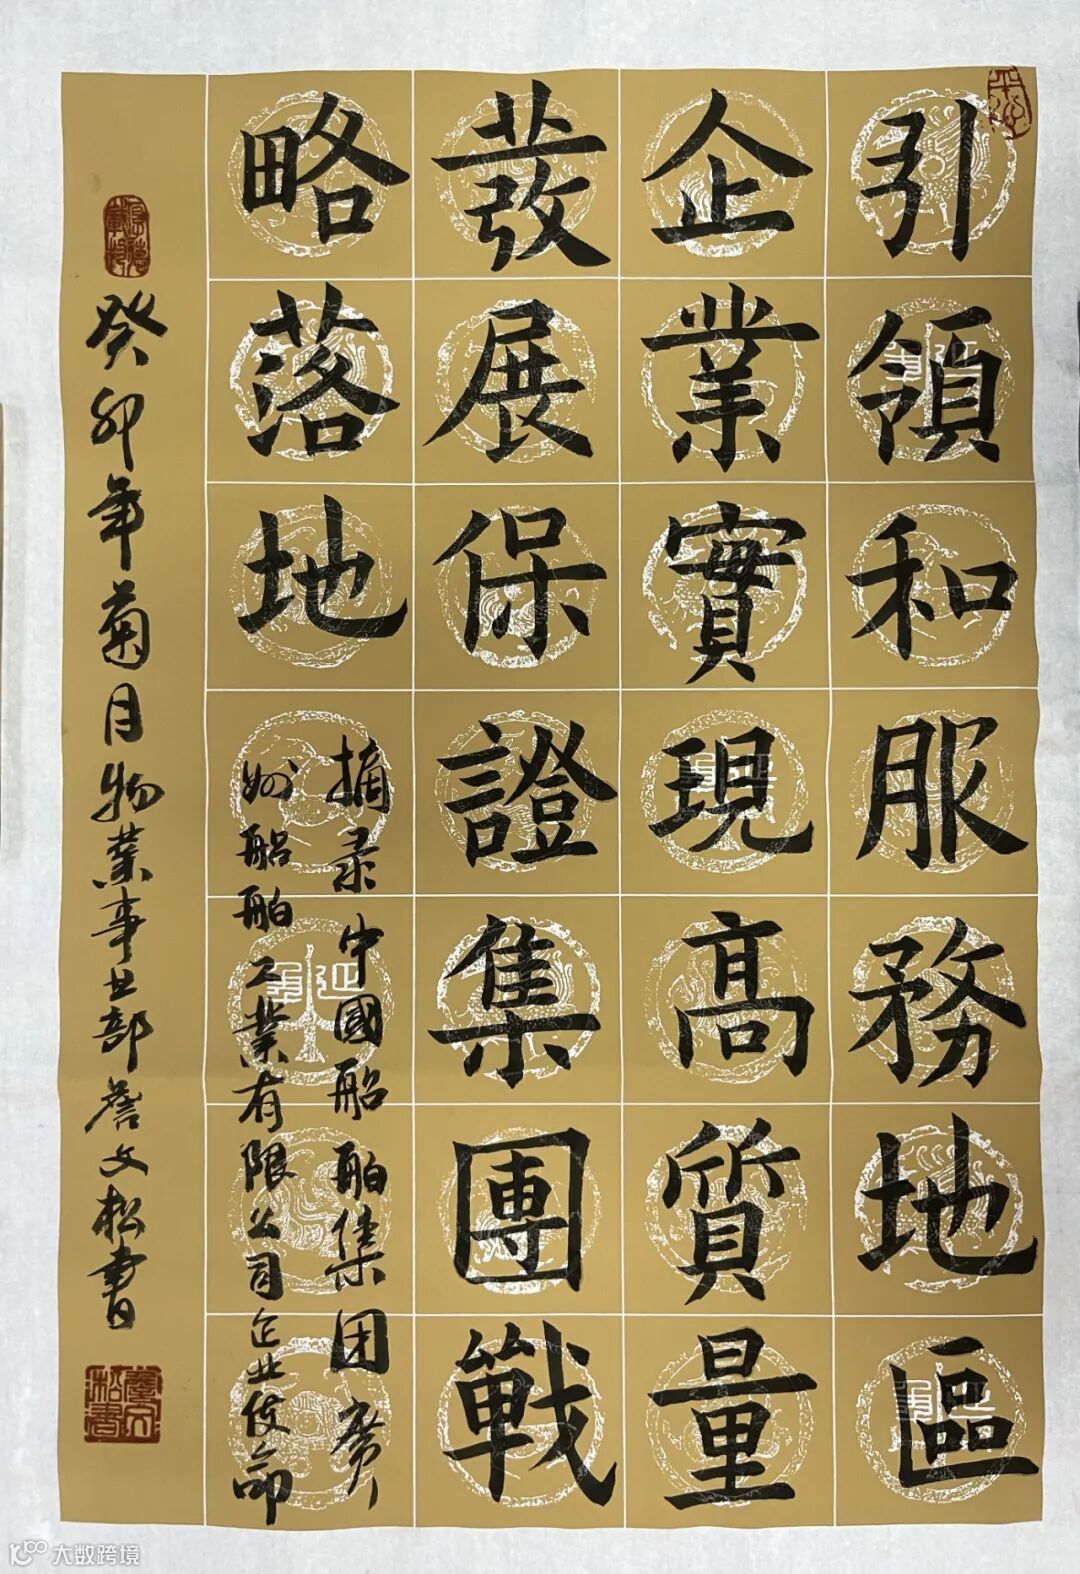 引領和服務地區
企業實現高質量
發展保證集團戰
略落地
摘录中國船舶集团广
州船舶工業有限公司企业使命
癸卯年菊月物業事业部詹文松書
大数跨境